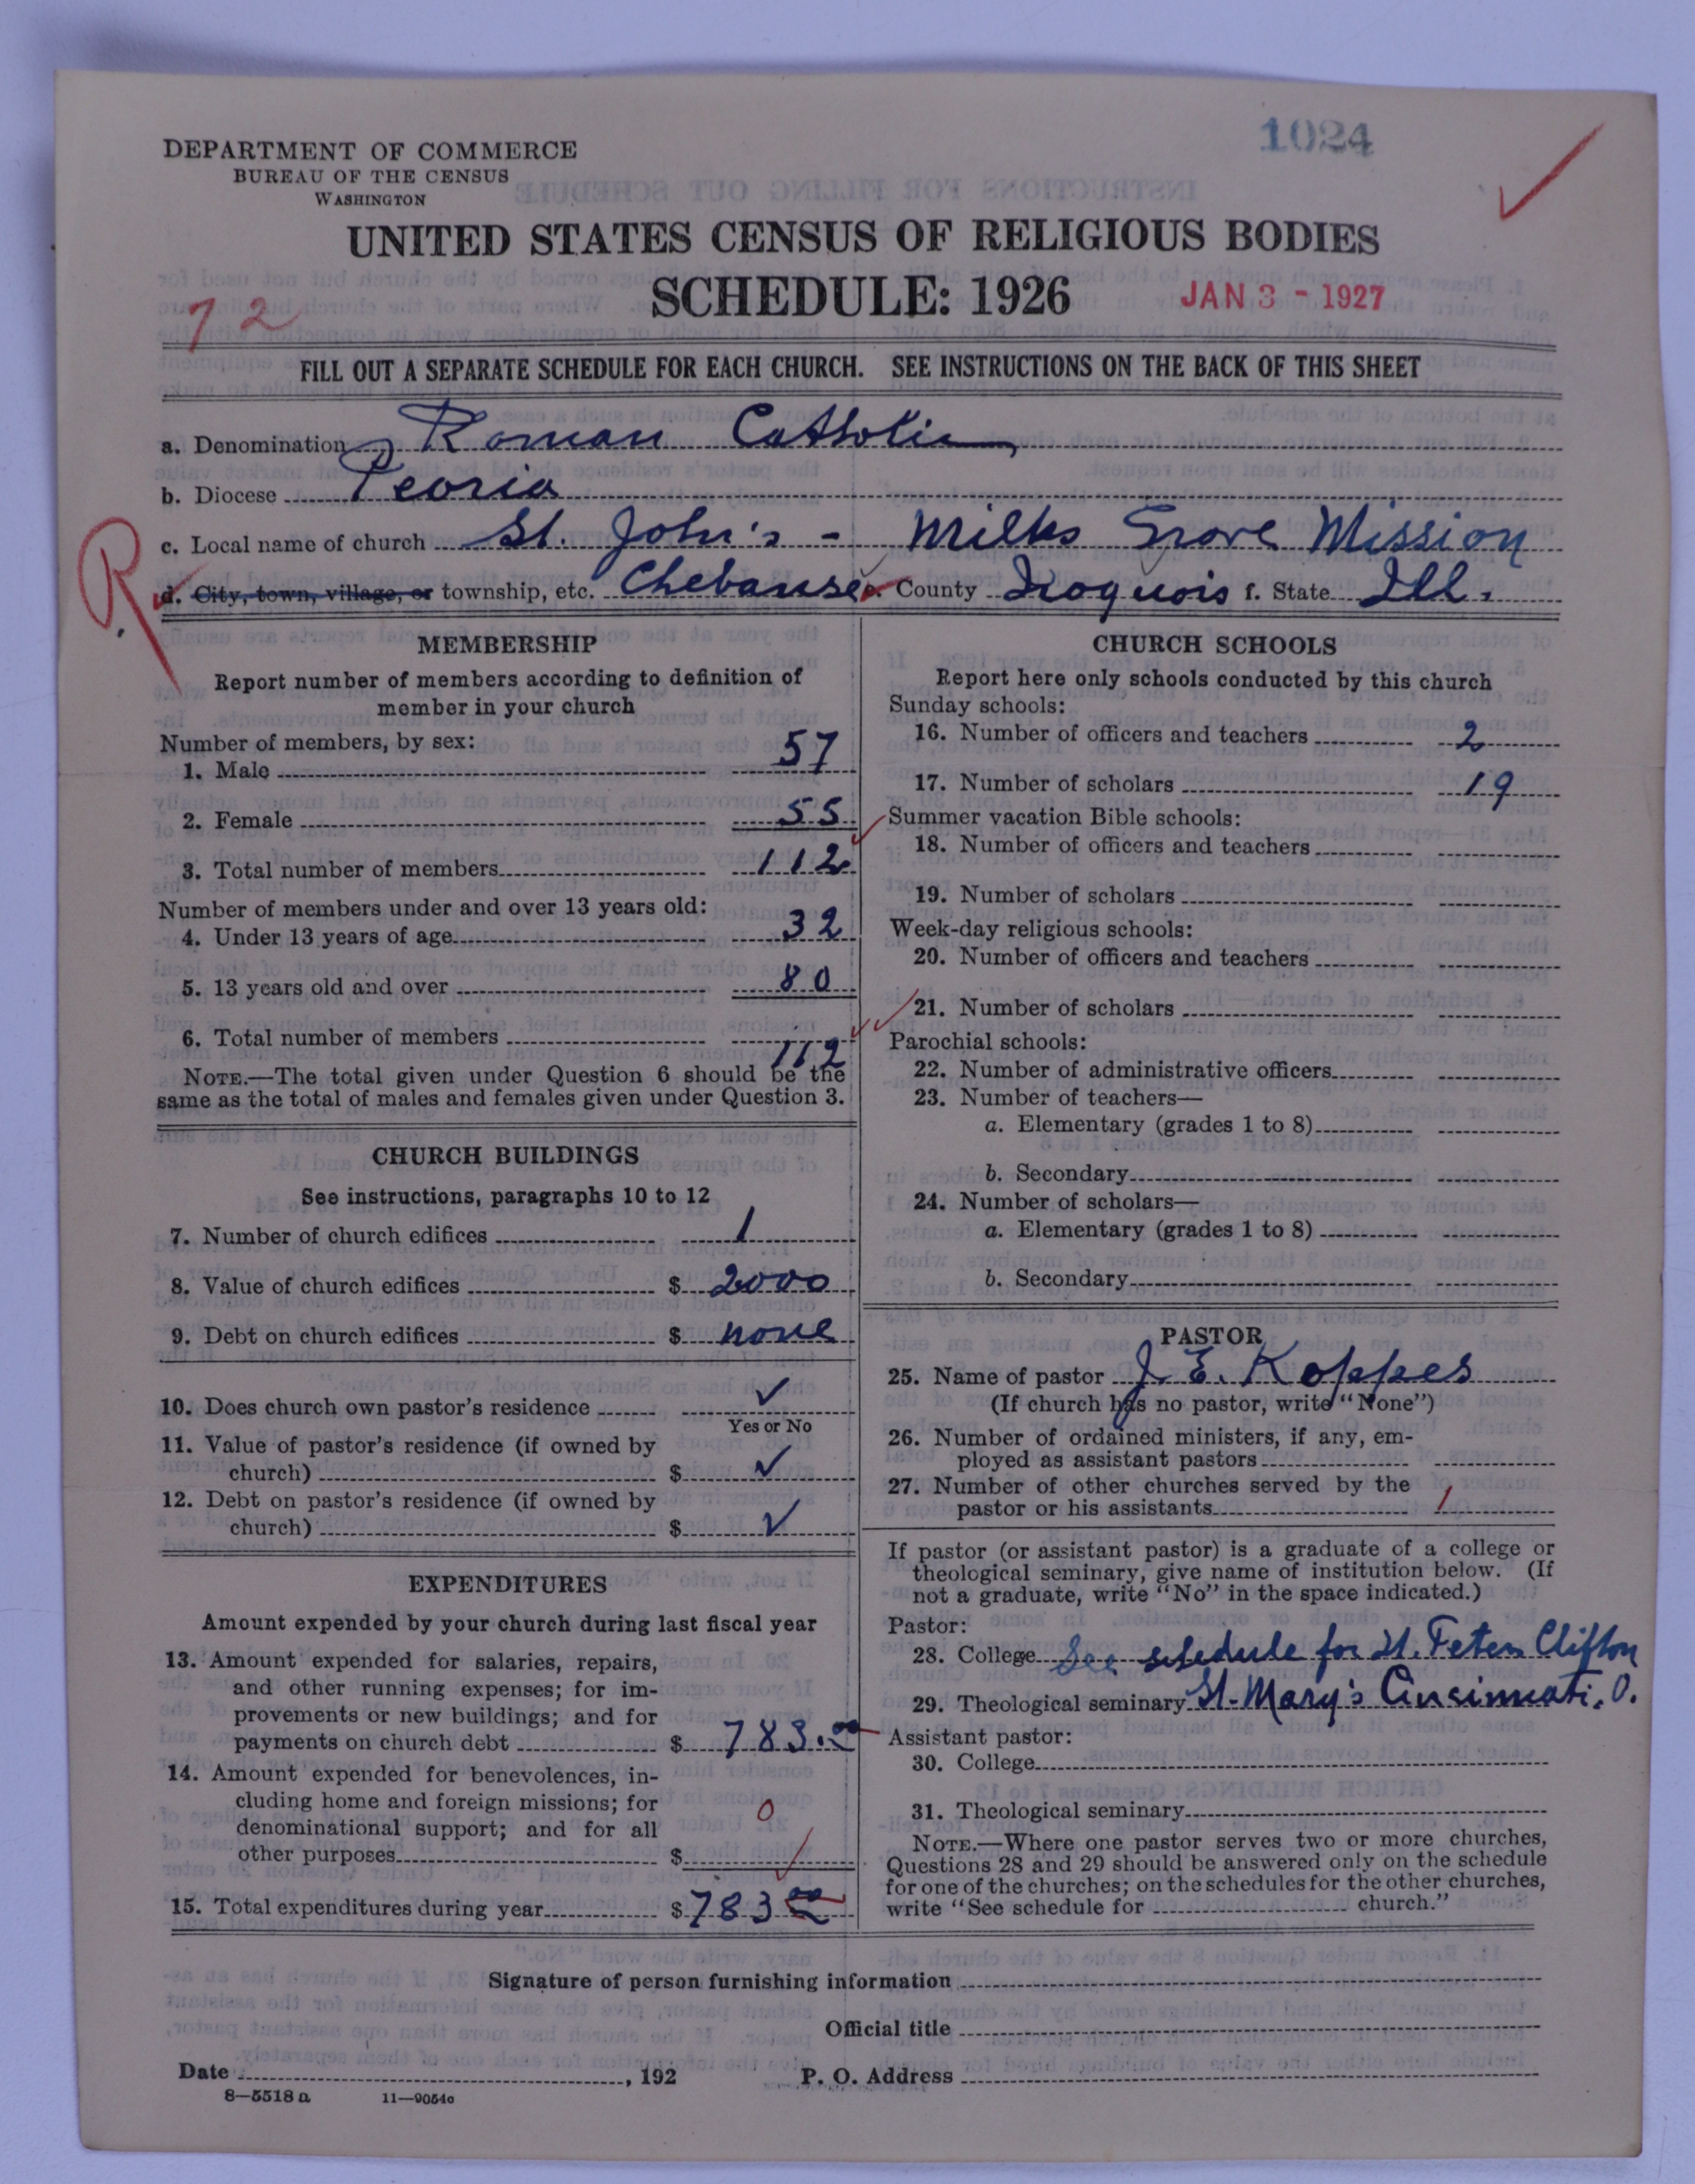 1024
DEPARTMENT OF COMMERCE
BUREAU OF THE CENSUS
WASHINGTON
UNITED STATES CENSUS OF RELIGIOUS BODIES
SCHEDULE: 1926
JAN 3 - 1927
72
FILL OUT A SEPARATE SCHEDULE FOR EACH CHURCH. SEE INSTRUCTIONS ON THE BACK OF THIS SHEET
a. Denomination Roman Catholic
b. Diocese Peoria
c. Local name of church St. John's - Milks Grove Mission
R
d. City, town, village, or township, etc. Chebanse e. County Iroquois f. State Ill.
MEMBERSHIP
Report number of members according to definition of
member in your church
Number of members, by sex:
1. Male 57
2. Female 55
3. Total number of members 112
Number of members under and over 13 years old:
4. Under 13 years of age 32
5. 13 years old and over 80
6. Total number of members 112
NOTE.—The total given under Question 6 should be the
same as the total of males and females given under Question 3.
CHURCH BUILDINGS
See instructions, paragraphs 10 to 12
7. Number of church edifices 1
8. Value of church edifices $ 2000
9. Debt on church edifices $ none
10. Does church own pastor's residence ✓
Yes or No
11. Value of pastor's residence (if owned by
church) $ ✓
12. Debt on pastor's residence (if owned by
church) $ ✓
EXPENDITURES
Amount expended by your church during last fiscal year
13. Amount expended for salaries, repairs,
and other running expenses; for im-
provements or new buildings; and for
payments on church debt $ 783.00
14. Amount expended for benevolences, in-
cluding home and foreign missions; for
denominational support; and for all
other purposes $ 0
15. Total expenditures during year $ 783 00
CHURCH SCHOOLS
Report here only schools conducted by this church
Sunday schools:
16. Number of officers and teachers 2
17. Number of scholars 19
Summer vacation Bible schools:
18. Number of officers and teachers
19. Number of scholars
Week-day religious schools:
20. Number of officers and teachers
21. Number of scholars
Parochial schools:
22. Number of administrative officers
23. Number of teachers—
a. Elementary (grades 1 to 8)
b. Secondary
24. Number of scholars—
a. Elementary (grades 1 to 8)
b. Secondary
PASTOR
25. Name of pastor J. E. Koppes
(If church has no pastor, write "None")
26. Number of ordained ministers, if any, em-
ployed as assistant pastors
27. Number of other churches served by the
pastor or his assistants 1
If pastor (or assistant pastor) is a graduate of a college or
theological seminary, give name of institution below. (If
not a graduate, write "No" in the space indicated.)
Pastor:
28. College See schedule for St. Peters Clifton
29. Theological seminary St-Mary's Cincinnati, O.
Assistant pastor:
30. College
31. Theological seminary
NOTE.—Where one pastor serves two or more churches,
Questions 28 and 29 should be answered only on the schedule
for one of the churches; on the schedules for the other churches,
write "See schedule for church."
Signature of person furnishing information
Official title
Date , 192
P. O. Address
8—5518 a 11—9054a